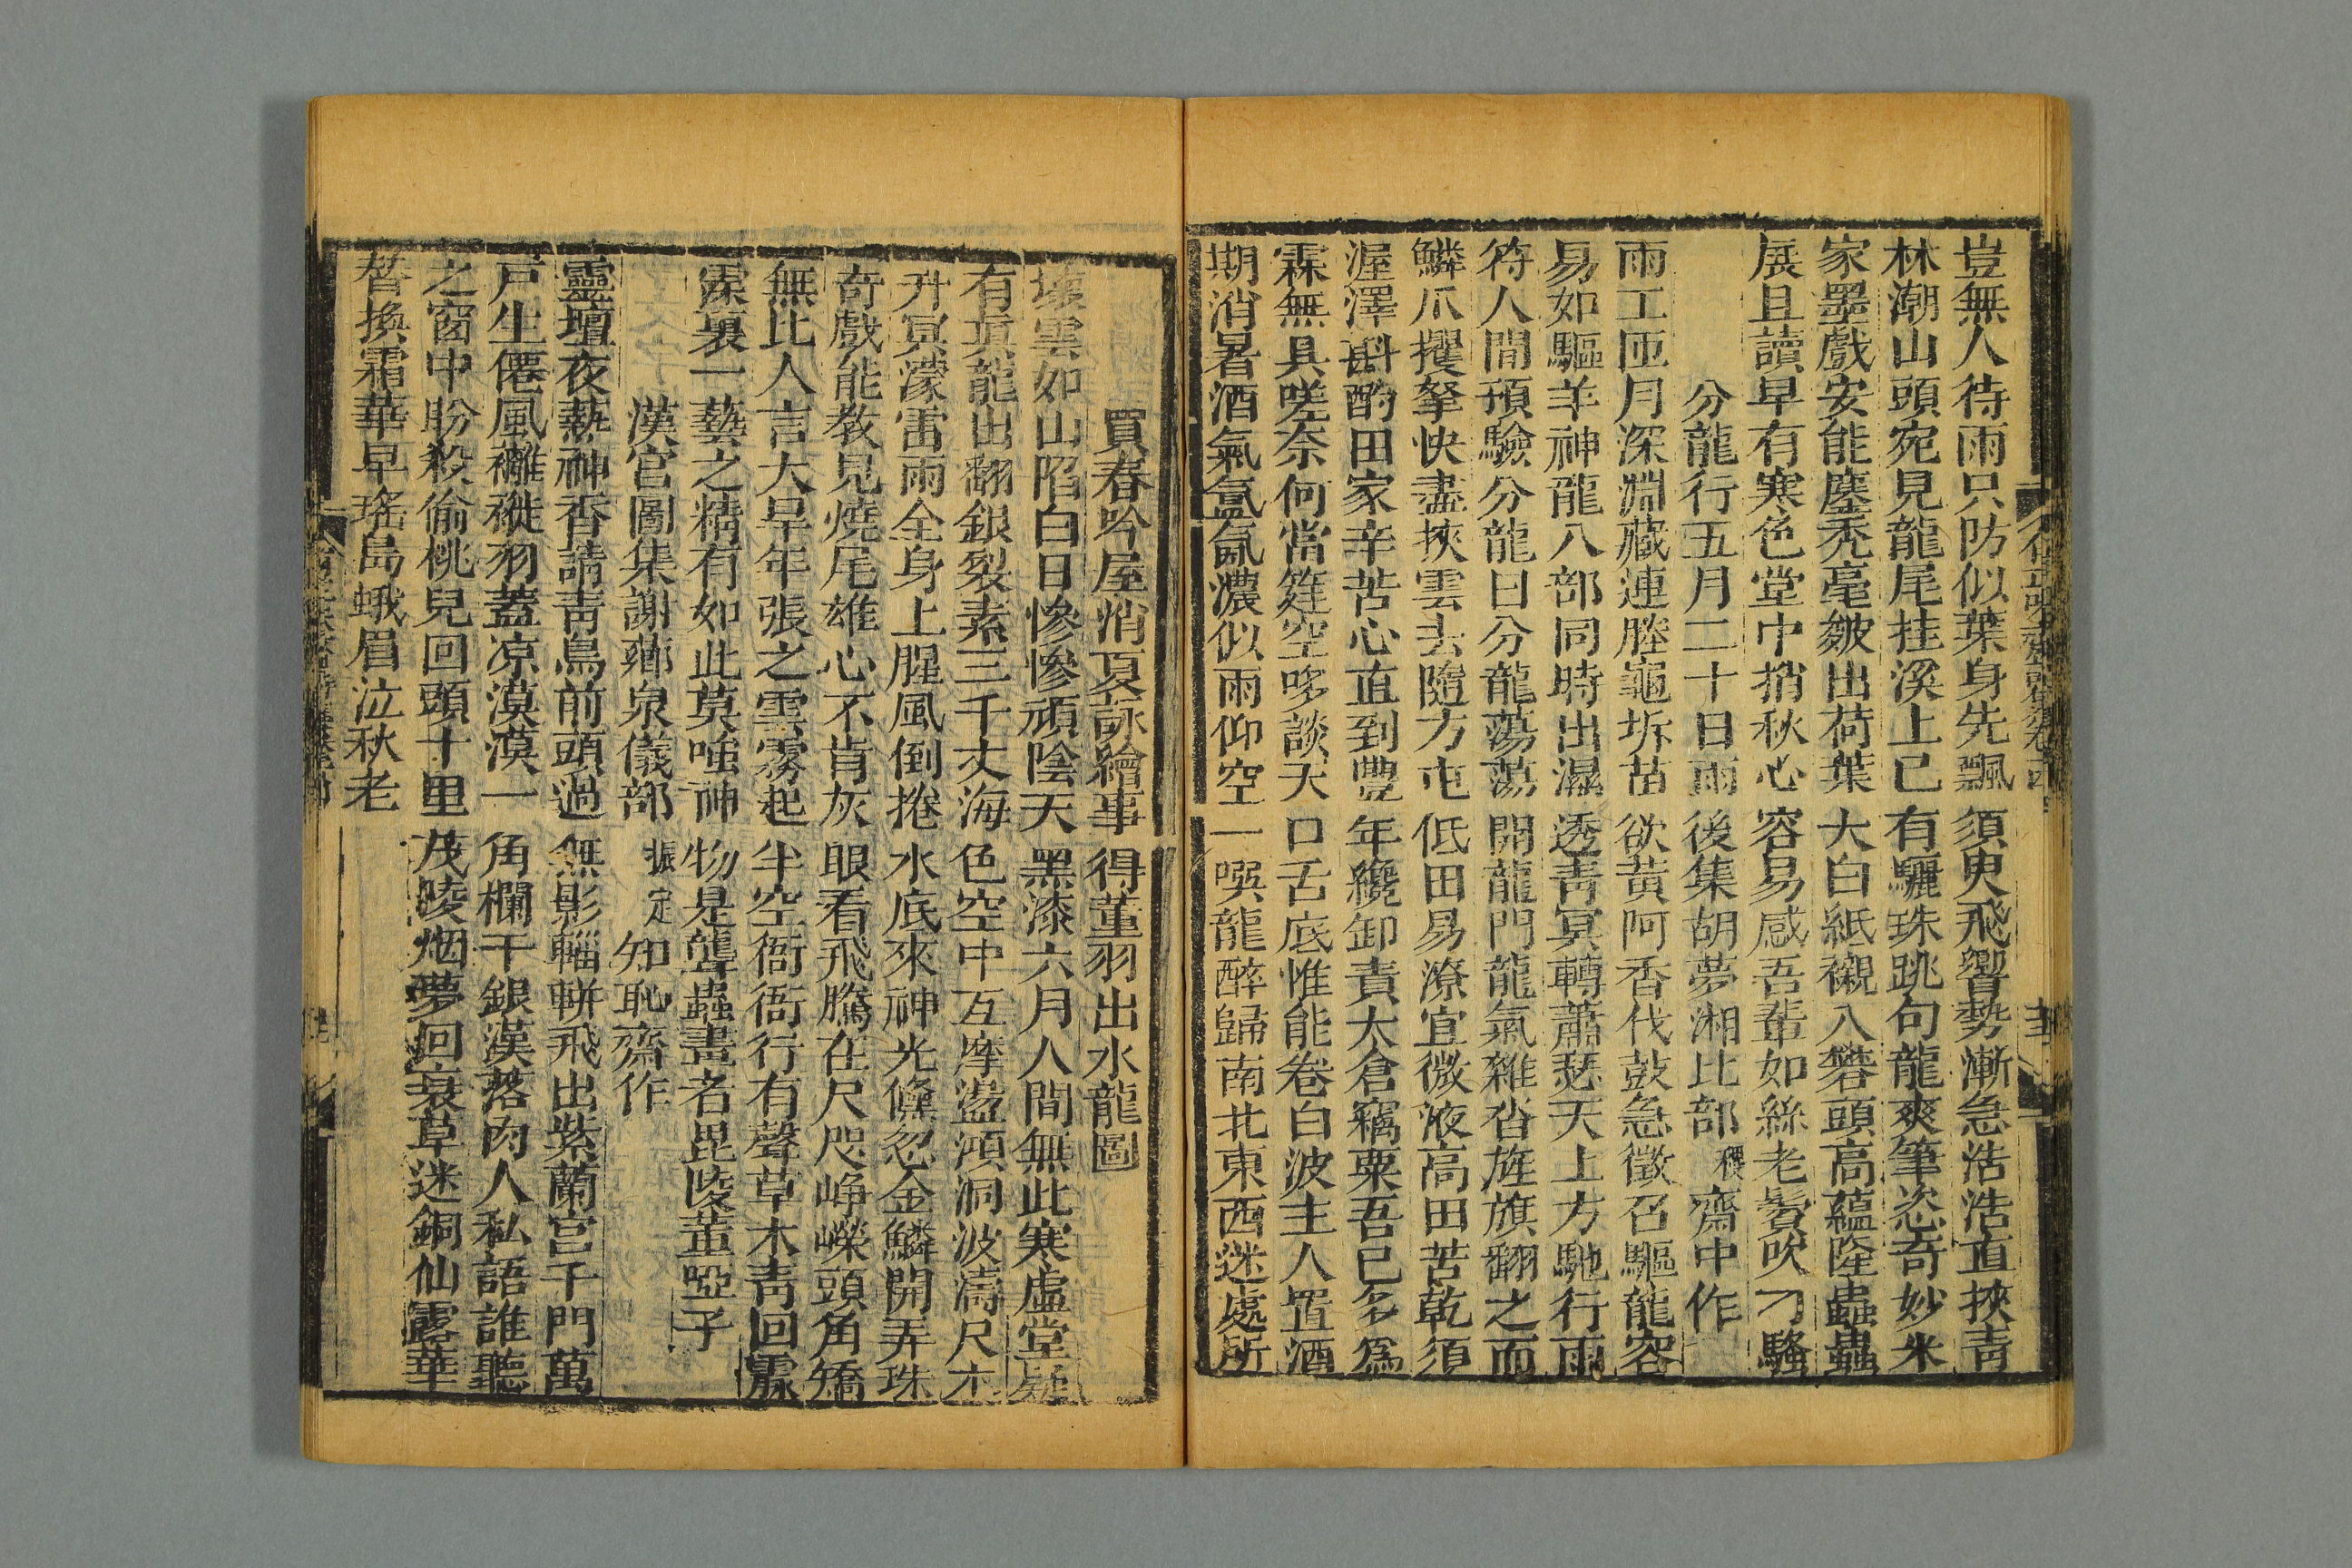 豈無人待雨只防似葉身先飄須臾飛響勢漸急浩浩直挾靑
林潮山頭宛見龍尾挂溪上已有驪珠跳句龍爽筆恣奇妙米
家墨戲安能塵禿毫皴出荷葉大白紙襯入礬頭高蘊隆蟲蟲
展且讀早有寒色堂中捎秋心容易感吾輩如絲老鬢吹刁騷
分龍行五月二十日雨後集胡夢湘比部稷齋中作
雨工匝月深淵藏連塍龜坼苗欲黃阿香伐鼓急徵召驅龍容
易如驅羊神龍八部同時出濕透靑冥轉蕭瑟天上方馳行雨
符人間預驗分龍日分龍蕩蕩開龍門龍氣雜沓旌旗翻之而
鱗爪攫拏快盡挾雲去隨方屯低田易潦宜微液高田苦乾須
渥澤斟酌田家辛苦心直到豐年纔卸責太倉竊粟吾已多爲
霖無具嗟奈何當筵空哆談天口舌底惟能卷白波主人置酒
期消暑酒氣氤氳濃似雨仰空一噀龍醉歸南北東西迷處所
買春吟屋消夏詠繪事得董羽出水龍圖
壞雲如山陷白日慘慘頑陰天黑漆六月人間無此寒虛堂疑
有真龍出翻銀裂素三千丈海色空中互摩盪澒洞波濤尺木
升冥濛雷雨全身上腥風倒捲水底來神光儵忽金鱗開弄珠
奇戲能教見燒尾雄心不肯灰眼看飛騰在尺咫崢嶸頭角矯
無比人言大旱年張之雲霧起半空衙衙行有聲草木靑回霢
霂裏一藝之精有如此莫嗤神物是聾蟲畫者毘陵董啞子
漢宮圖集謝薌泉儀部振定知恥齋作
靈壇夜爇神香請靑鳥前頭過無影輜軿飛出紫蘭宮千門萬
戸生僊風襳褷羽蓋凉漠漠一角欄干銀漢落內人私語誰聽
之窗中盼殺偷桃兒回頭十里茂陵烟夢回衰草迷銅仙露華
暗換霜華早瑤島蛾眉泣秋老